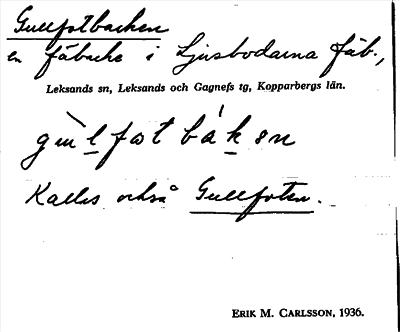 Gullfotbacken
en fäbacke i Ljusbodarna fäb.,
Leksands sn, Leksands och Gagnefs tg, Kopparbergs län.
gu̇l fɷt bákən
Kallas också Gullfoten.
ERIK M. CARLSSON, 1936.